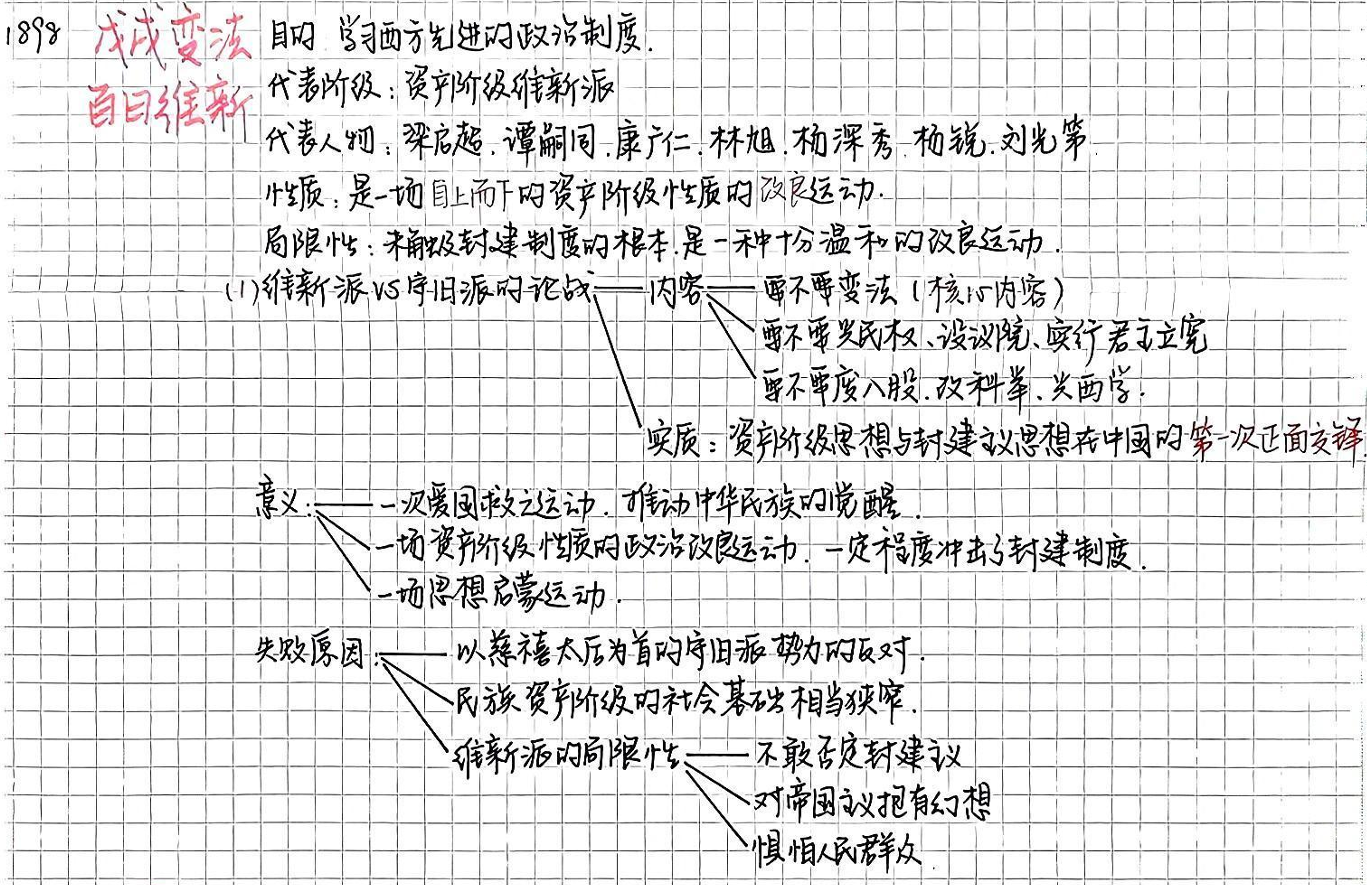 1898 戊戌变法 目的 学习西方先进的政治制度.
百日维新 代表阶级：资产阶级维新派
代表人物：梁启超.谭嗣同.康广仁.林旭.杨深秀.杨锐.刘光第
性质：是一场自上而下的资产阶级性质的改良运动.
局限性：未触及封建制度的根本.是一种十分温和的改良运动.
(1)维新派VS守旧派的论战 内容 要不要变法(核心内容)
要不要兴民权、设议院、实行君主立宪
要不要废八股.改科举、兴西学.
实质：资产阶级思想与封建主义思想在中国的第一次正面交锋.
意义: 一次爱国救亡运动.推动中华民族的觉醒.
一场资产阶级性质的政治改良运动.一定程度冲击了封建制度.
一场思想启蒙运动.
失败原因: 以慈禧太后为首的守旧派势力的反对.
民族资产阶级的社会基础相当狭窄.
维新派的局限性 不敢否定封建主义
对帝国主义抱有幻想
惧怕人民群众